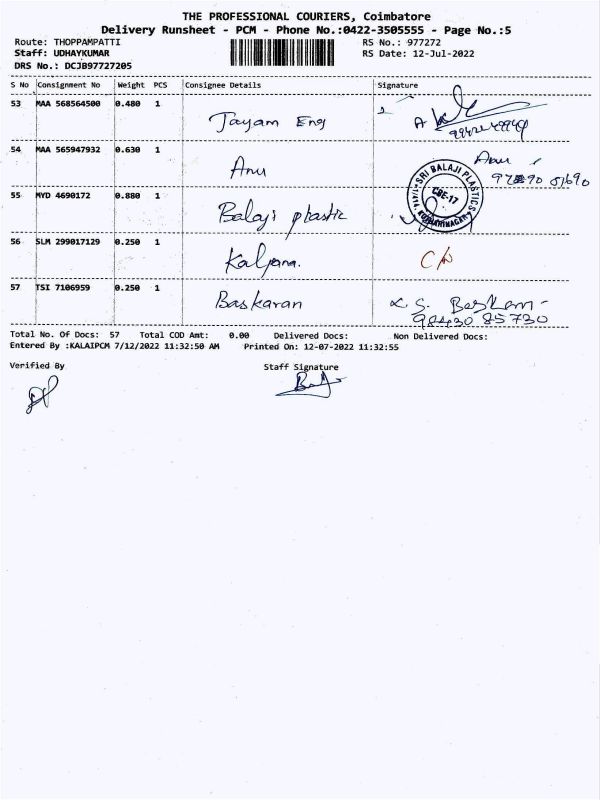 THE PROFESSIONAL COURIERS, Coimbatore
Delivery Runsheet - PCM - Phone No.:0422-3505555 - Page No.:5
Route: THOPPAMPATTI RS No.: 977272
Staff: UDHAYKUMAR RS Date: 12-Jul-2022
DRS No.: DCJB97727205
S No Consignment No Weight PCS Consignee Details Signature
53 MAA 568564500 0.480 1 Jayam Eng
54 MAA 565947932 0.630 1 Anu Anu
55 MYD 4690172 0.880 1 Balaji plastic SRI BALAJI PLASTICS CBE-17
56 SLM 299017129 0.250 1 Kalpana. C/N
57 TSI 7106959 0.250 1 Baskaran S. Baskaran
98430 85730
Total No. Of Docs: 57 Total COD Amt: 0.00 Delivered Docs: Non Delivered Docs:
Entered By :KALAIPCM 7/12/2022 11:32:50 AM Printed On: 12-07-2022 11:32:55
Verified By Staff Signature